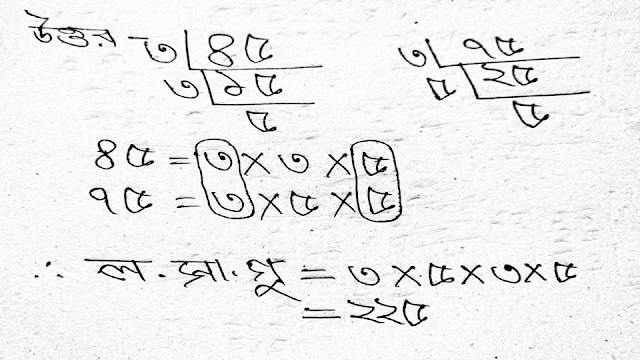 উত্তর ৩ | ৪৫   ৩ | ৭৫
৩ | ১৫   ৫ | ২৫
৫   ৫
৪৫ = ৩ × ৩ × ৫
৭৫ = ৩ × ৫ × ৫
∴ ল.সা.গু = ৩ × ৫ × ৩ × ৫
= ২২৫